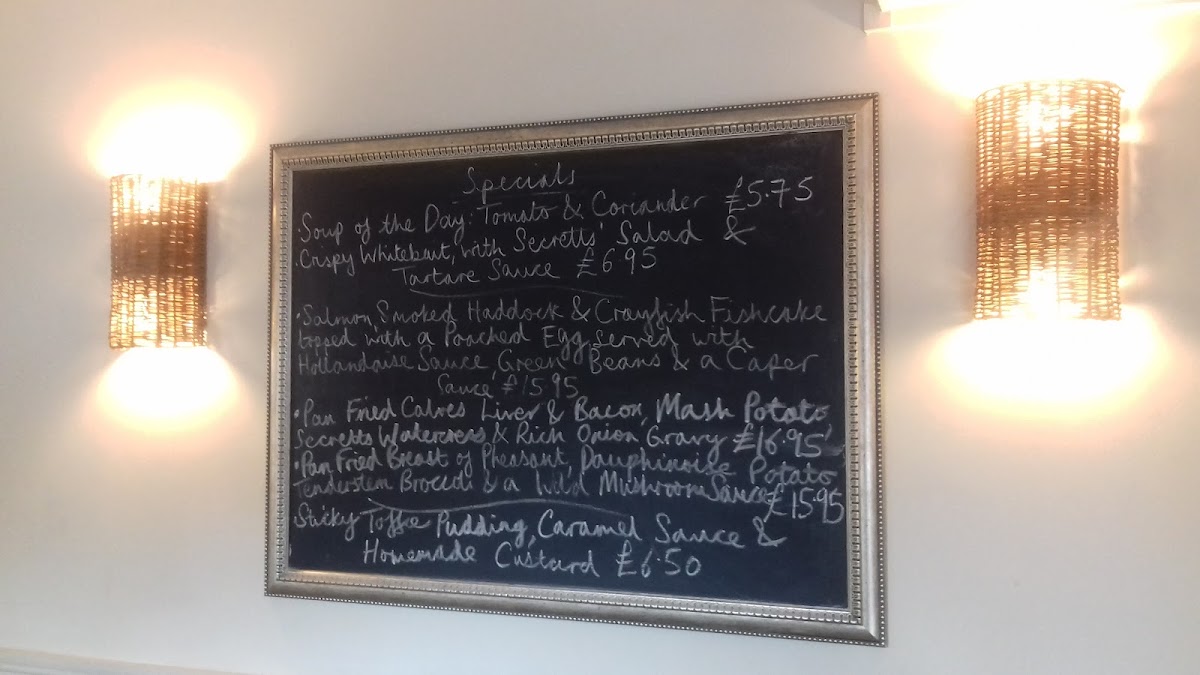 Specials
· Soup of the Day: Tomato & Coriander £5.75
· Crispy Whitebait, with Secretts' Salad &
Tartare Sauce £6.95
· Salmon, Smoked Haddock & Crayfish Fishcake
topped with a Poached Egg, served with
Hollandaise Sauce, Green Beans & a Caper
Sauce £15.95
· Pan Fried Calves Liver & Bacon, Mash Potato,
Secretts Watercress & Rich Onion Gravy £16.95
· Pan Fried Breast of Pheasant, Dauphinoise Potato
Tenderstem Broccoli & a Wild Mushroom Sauce £15.95
Sticky Toffee Pudding, Caramel Sauce &
Homemade Custard £6.50